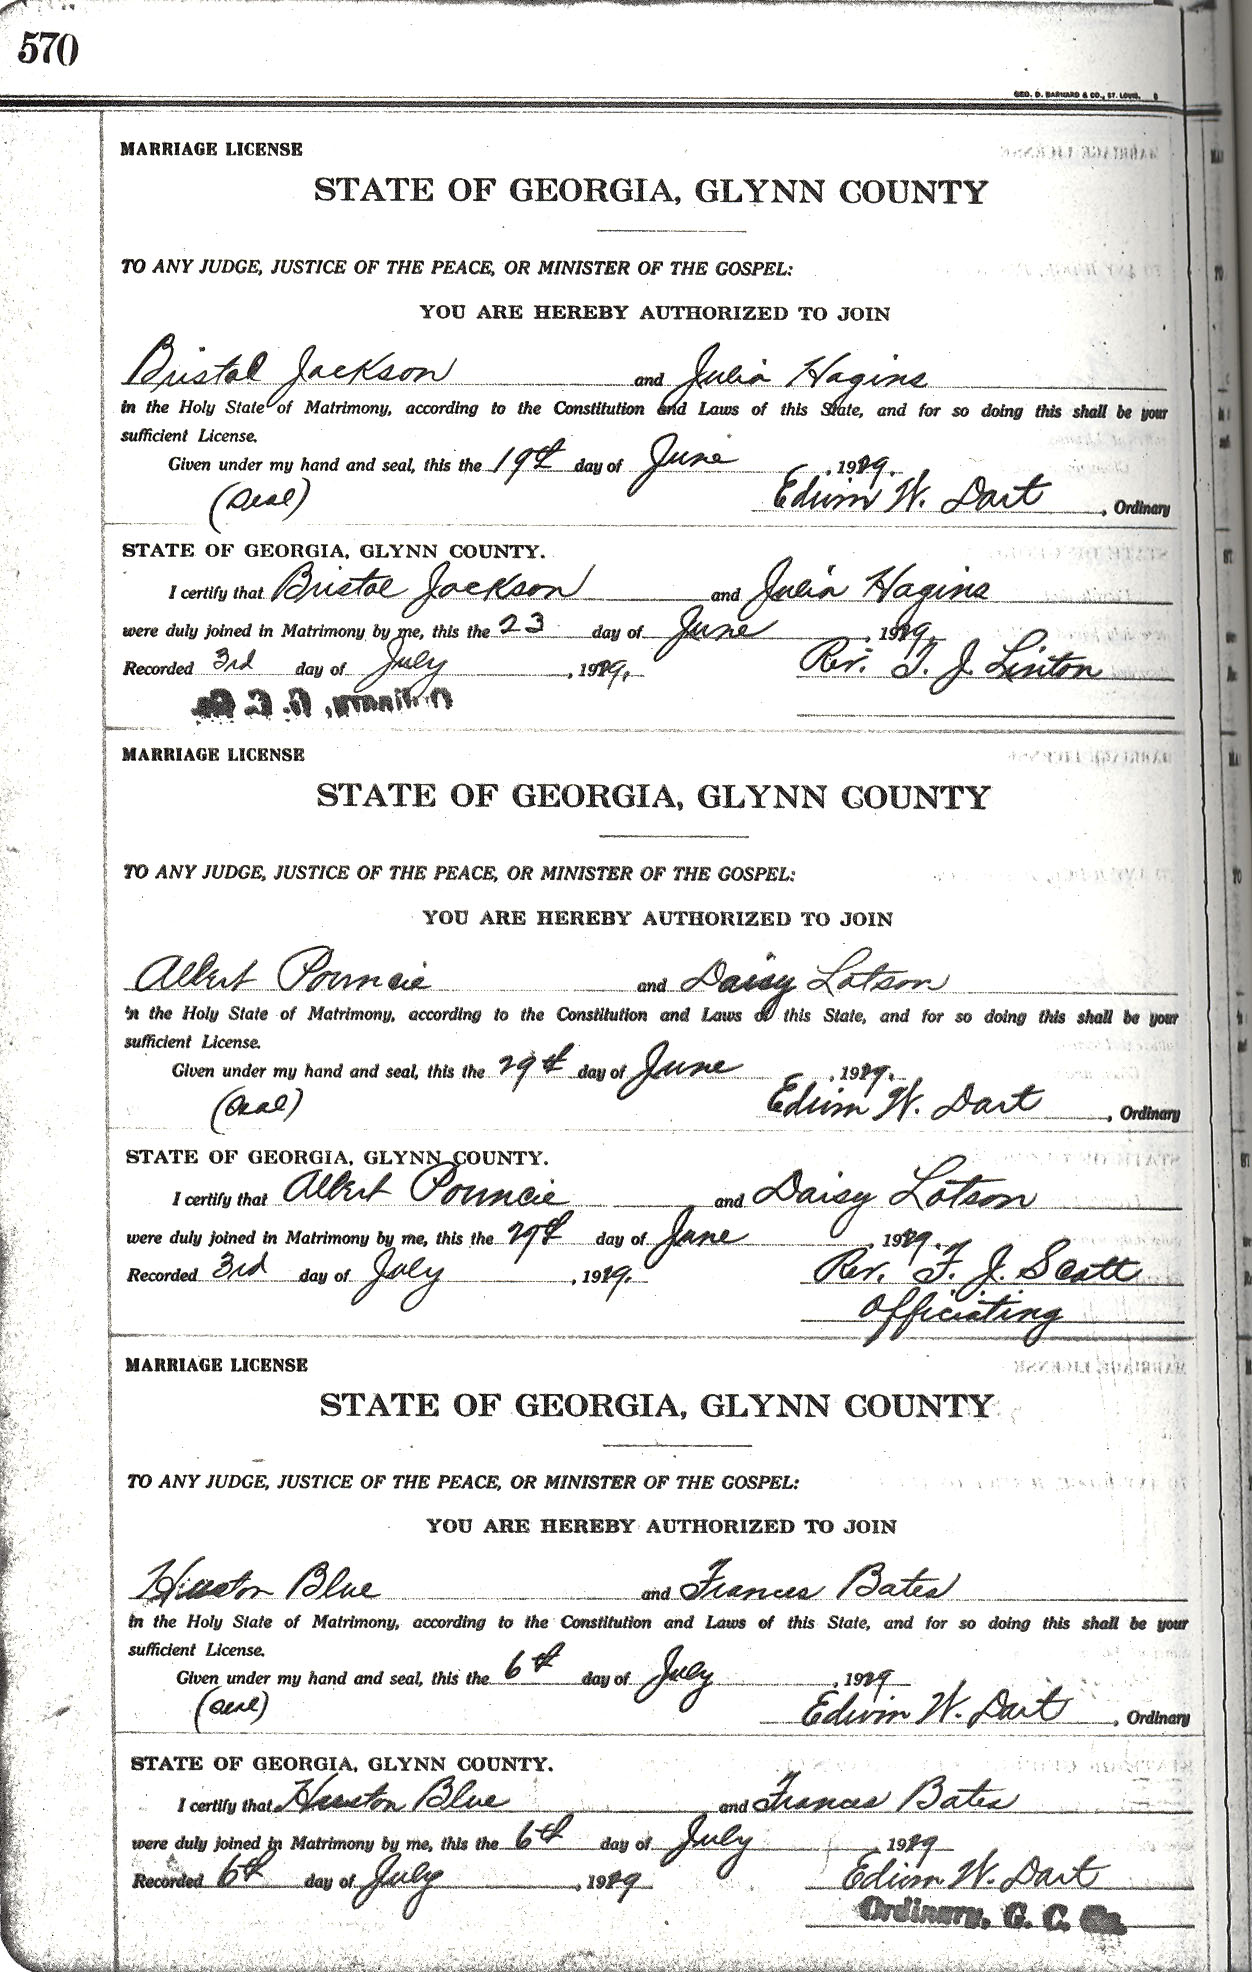 570
GEO. D. BARNARD & CO., ST. LOUIS.
MARRIAGE LICENSE
STATE OF GEORGIA, GLYNN COUNTY
TO ANY JUDGE, JUSTICE OF THE PEACE, OR MINISTER OF THE GOSPEL:
YOU ARE HEREBY AUTHORIZED TO JOIN
Bristol Jackson and Julia Hagins
in the Holy State of Matrimony, according to the Constitution and Laws of this State, and for so doing this shall be your
sufficient License.
Given under my hand and seal, this the 19th day of June, 1929.
(Seal) Edwin W. Dart, Ordinary
STATE OF GEORGIA, GLYNN COUNTY.
I certify that Bristol Jackson and Julia Hagins
were duly joined in Matrimony by me, this the 23 day of June, 1929.
Recorded 3rd day of July, 1929. Rev. T. J. Linton
MARRIAGE LICENSE
STATE OF GEORGIA, GLYNN COUNTY
TO ANY JUDGE, JUSTICE OF THE PEACE, OR MINISTER OF THE GOSPEL:
YOU ARE HEREBY AUTHORIZED TO JOIN
Albert Pouncie and Daisy Lotson
in the Holy State of Matrimony, according to the Constitution and Laws of this State, and for so doing this shall be your
sufficient License.
Given under my hand and seal, this the 29th day of June, 1929.
(Seal) Edwin W. Dart, Ordinary
STATE OF GEORGIA, GLYNN COUNTY.
I certify that Albert Pouncie and Daisy Lotson
were duly joined in Matrimony by me, this the 29th day of June, 1929.
Recorded 3rd day of July, 1929. Rev. F. J. Scott
Officiating
MARRIAGE LICENSE
STATE OF GEORGIA, GLYNN COUNTY
TO ANY JUDGE, JUSTICE OF THE PEACE, OR MINISTER OF THE GOSPEL:
YOU ARE HEREBY AUTHORIZED TO JOIN
Huston Blue and Frances Bates
in the Holy State of Matrimony, according to the Constitution and Laws of this State, and for so doing this shall be your
sufficient License.
Given under my hand and seal, this the 6th day of July, 1929
(Seal) Edwin W. Dart, Ordinary
STATE OF GEORGIA, GLYNN COUNTY.
I certify that Huston Blue and Frances Bates
were duly joined in Matrimony by me, this the 6th day of July, 1929
Recorded 6th day of July, 1929 Edwin W. Dart
Ordinary, G. C.